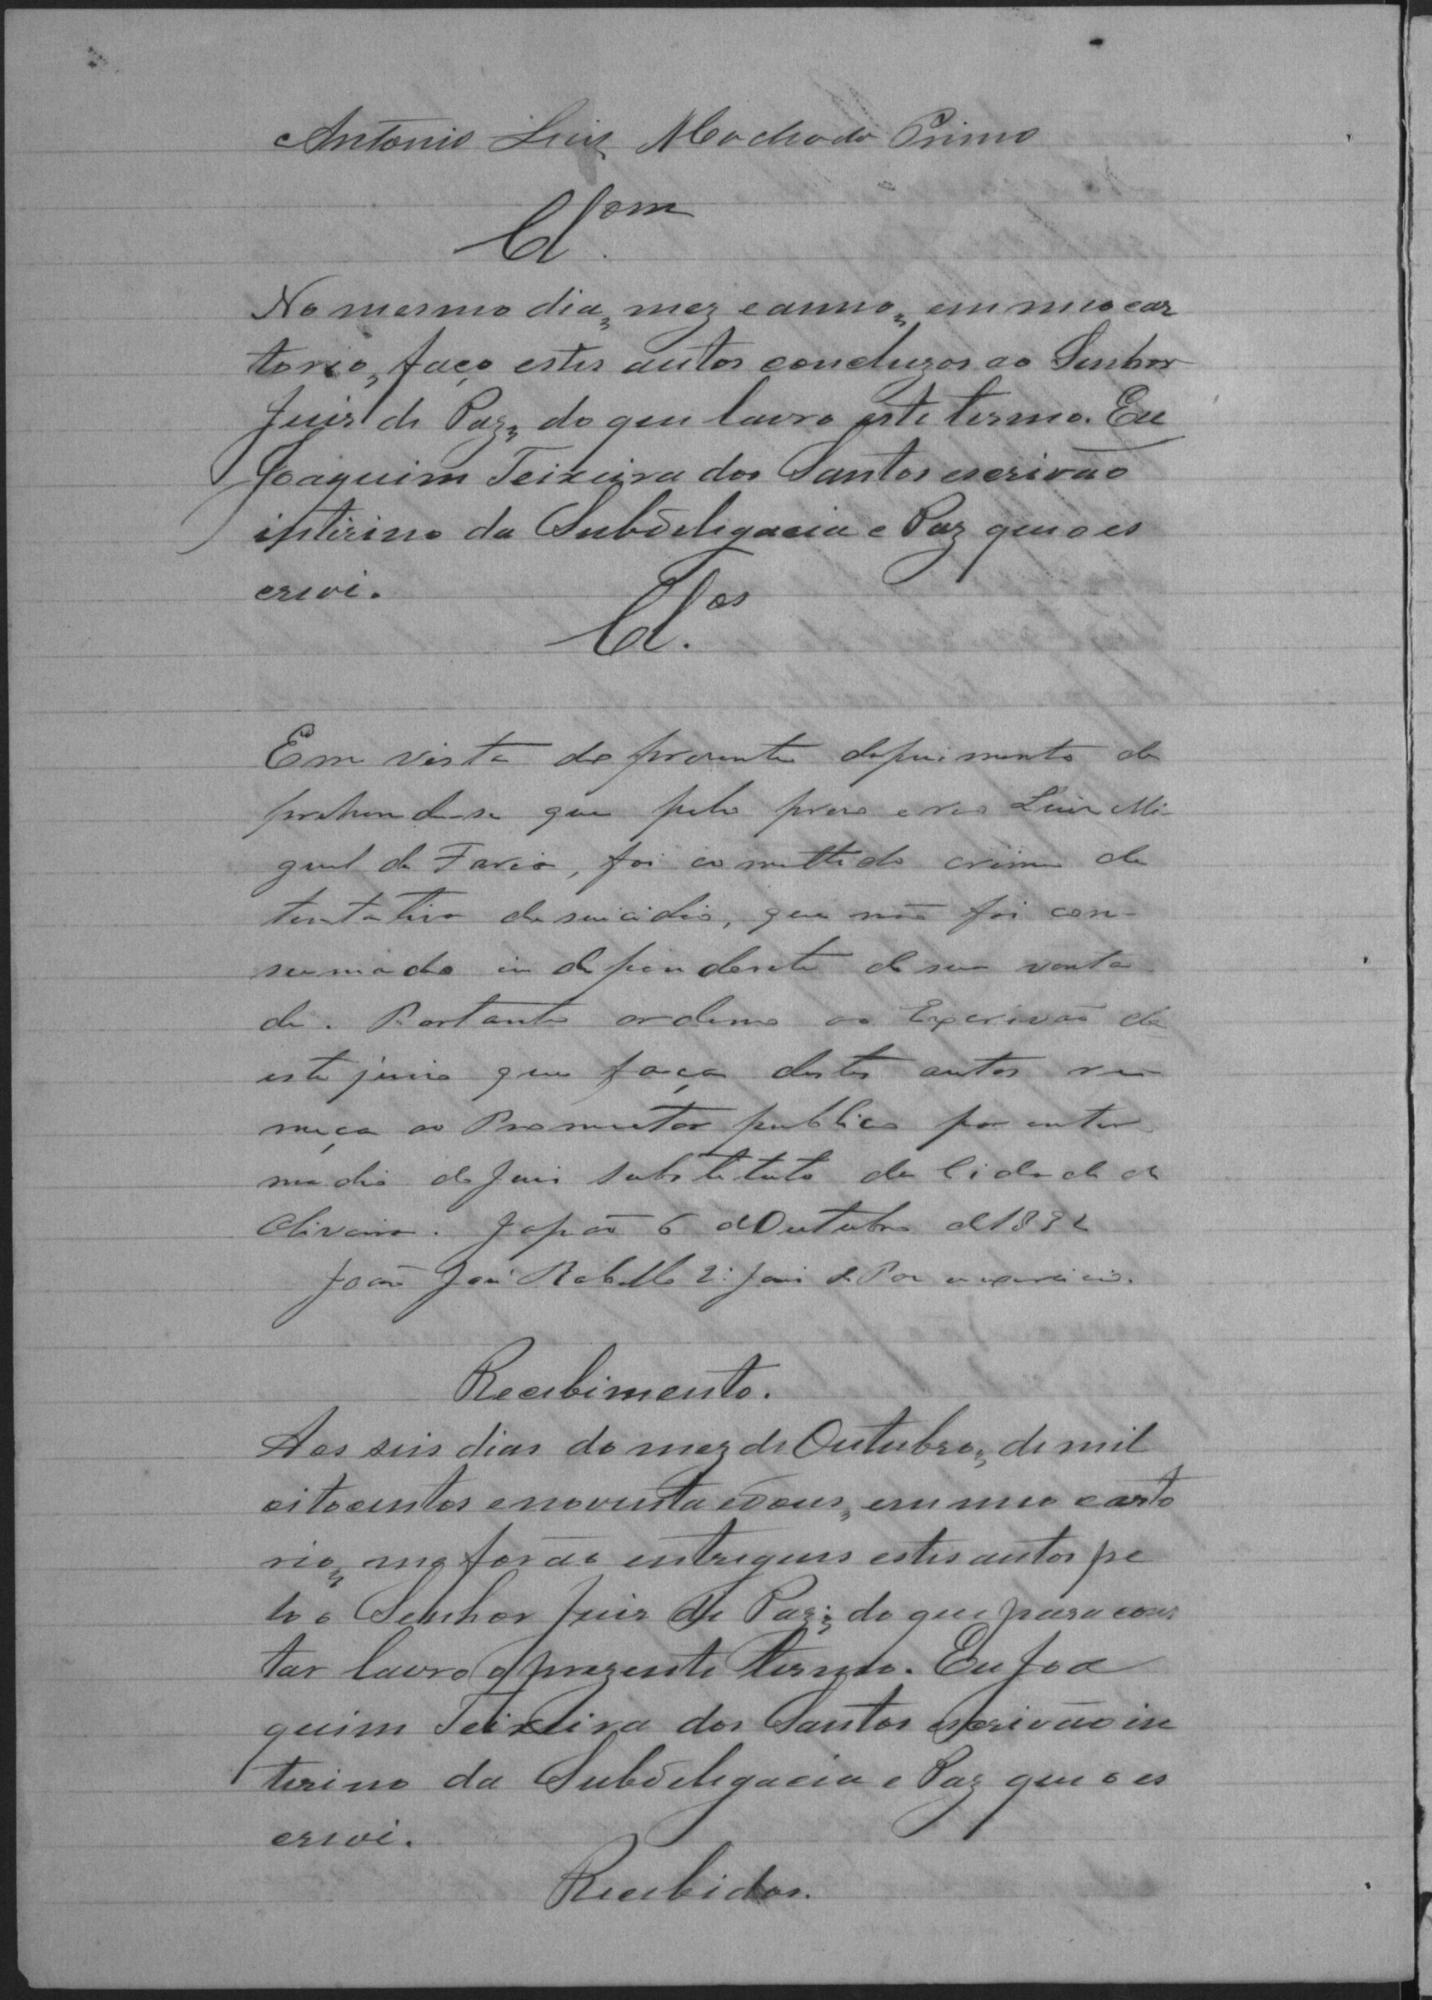 Antonio Luiz Machado Primo
Cl.om
No mesmo dia, mez e anno, em meo car
torio, faço estes autos concluzos ao Senhor
Juiz de Paz, do que lavro este termo. Eu
Joaquim Teixeira dos Santos escrivão
interino da Subdelegacia e Paz que o es
crevi.
Cl.os
Em vista do prezente depuimento de
prehende-se que pelo prezo e reo Luiz Mi
guel de Faria, foi comettido crime de
tentativa de suicidio, que não foi con-
sumado independente de sua vonta
de. Portanto ordeno ao Escrivão de
este juizo que faça destes autos re
meça ao Promutor publico por enter
medio do Juiz substituto da Cidade de
Oliveira. Japão 6 de Outubro de 1892
João José Rabello 2º Juiz de Paz em exercicio.
Recebimento.
Aos seis dias do mez de Outubro, de mil
oitocentos e noventa e dous, em meo carto
rio, me forão entregues estes autos pe
lo o Senhor Juiz de Paz; do que para cons
tar lavro o prezente termo. Eu Joa
quim Teixeira dos Santos escrivão in
terino da Subdelegacia e Paz que o es
crevi.
Recebidos.